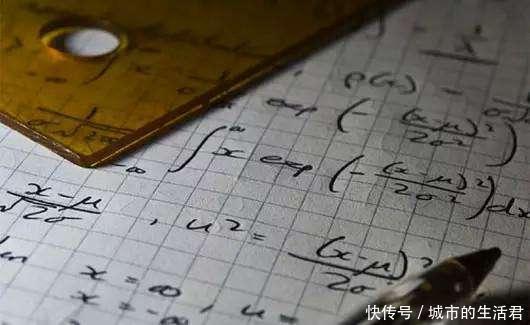 x²
p(x) =
exp (− (x−μ)² / 2σ²)
∫ x exp (− (x−μ)² / 2σ²) dx
x−μ / √2σ , u² = (x−μ)² / 2σ²
x = ∞
x = −∞ , u =
快传号/城市的生活君